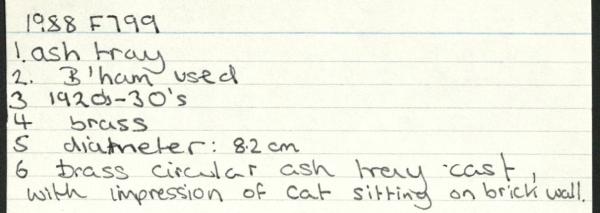 1988 F799
1. ash tray
2. B'ham used
3 1920s-30's
4 brass
5 diameter: 8.2 cm
6 brass circular ash tray cast,
with impression of cat sitting on brick wall.